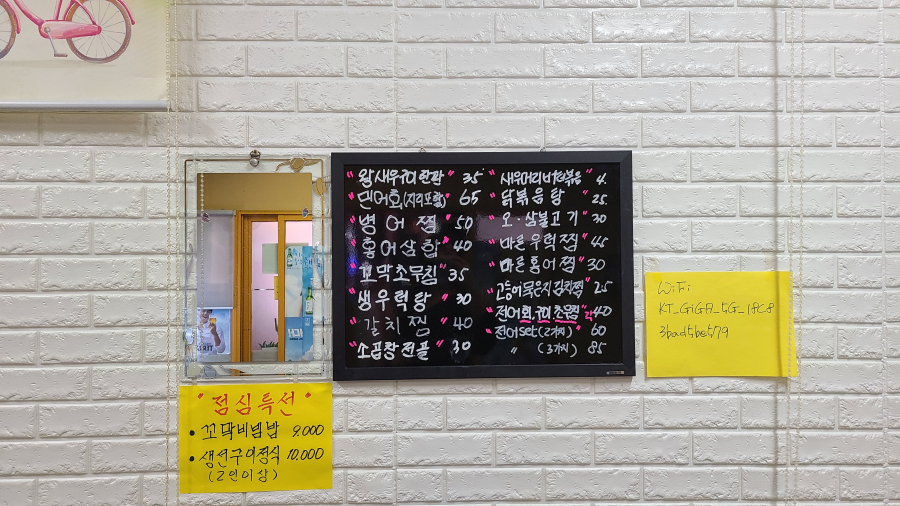 "왕새우구이한판" 35
"민어회(지리포함)" 65
"병어찜" 50
"홍어삼합" 40
"꼬막초무침" 35
"생우럭탕" 30
"갈치찜" 40
"소곱창전골" 30
"새우머리버터볶음" 4.
"닭볶음탕" 25
"오·삼불고기" 30
"마른우럭찜" 45
"마른홍어찜" 30
"고등어묵은지김치찜" 25
"전어회.구이.초무침" 각40
"전어set(2가지)" 60
" (3가지) 85
WiFi
KT_GiGA_5G_18C8
"점심특선"
• 꼬막비빔밥 9,000
• 생선구이정식 10,000
(2인이상)